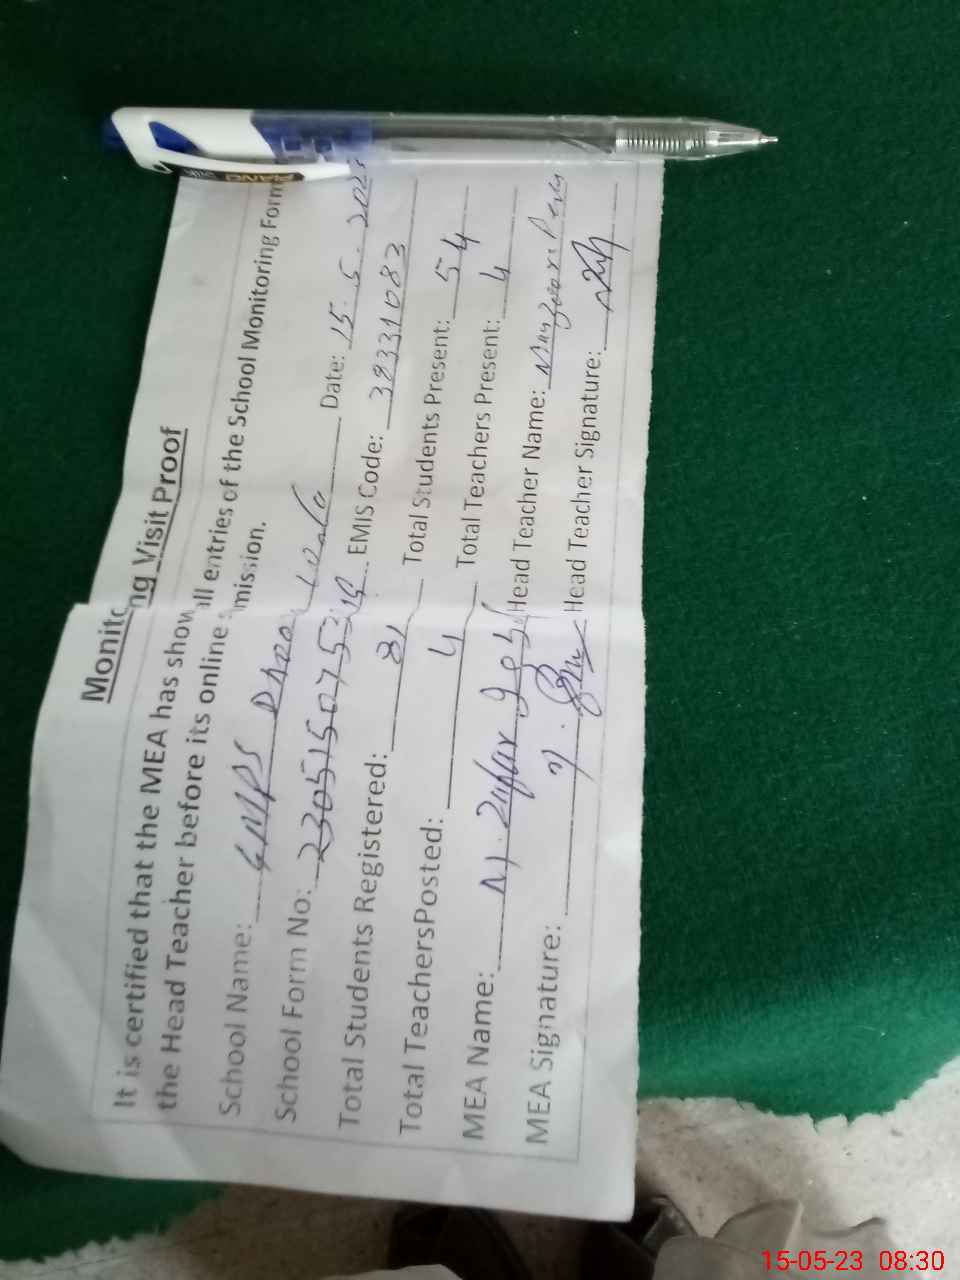 Monitoring Visit Proof
It is certified that the MEA has shown all entries of the School Monitoring Form
the Head Teacher before its online mission.
School Name: GMPS Date: 15. 5. 2023
School Form No: EMIS Code: 38331083
Total Students Registered: 81 Total Students Present: 54
Total TeachersPosted: 4 Total Teachers Present: 4
MEA Name: Head Teacher Name:
MEA Signature: Head Teacher Signature:
PIANO
15-05-23 08:30